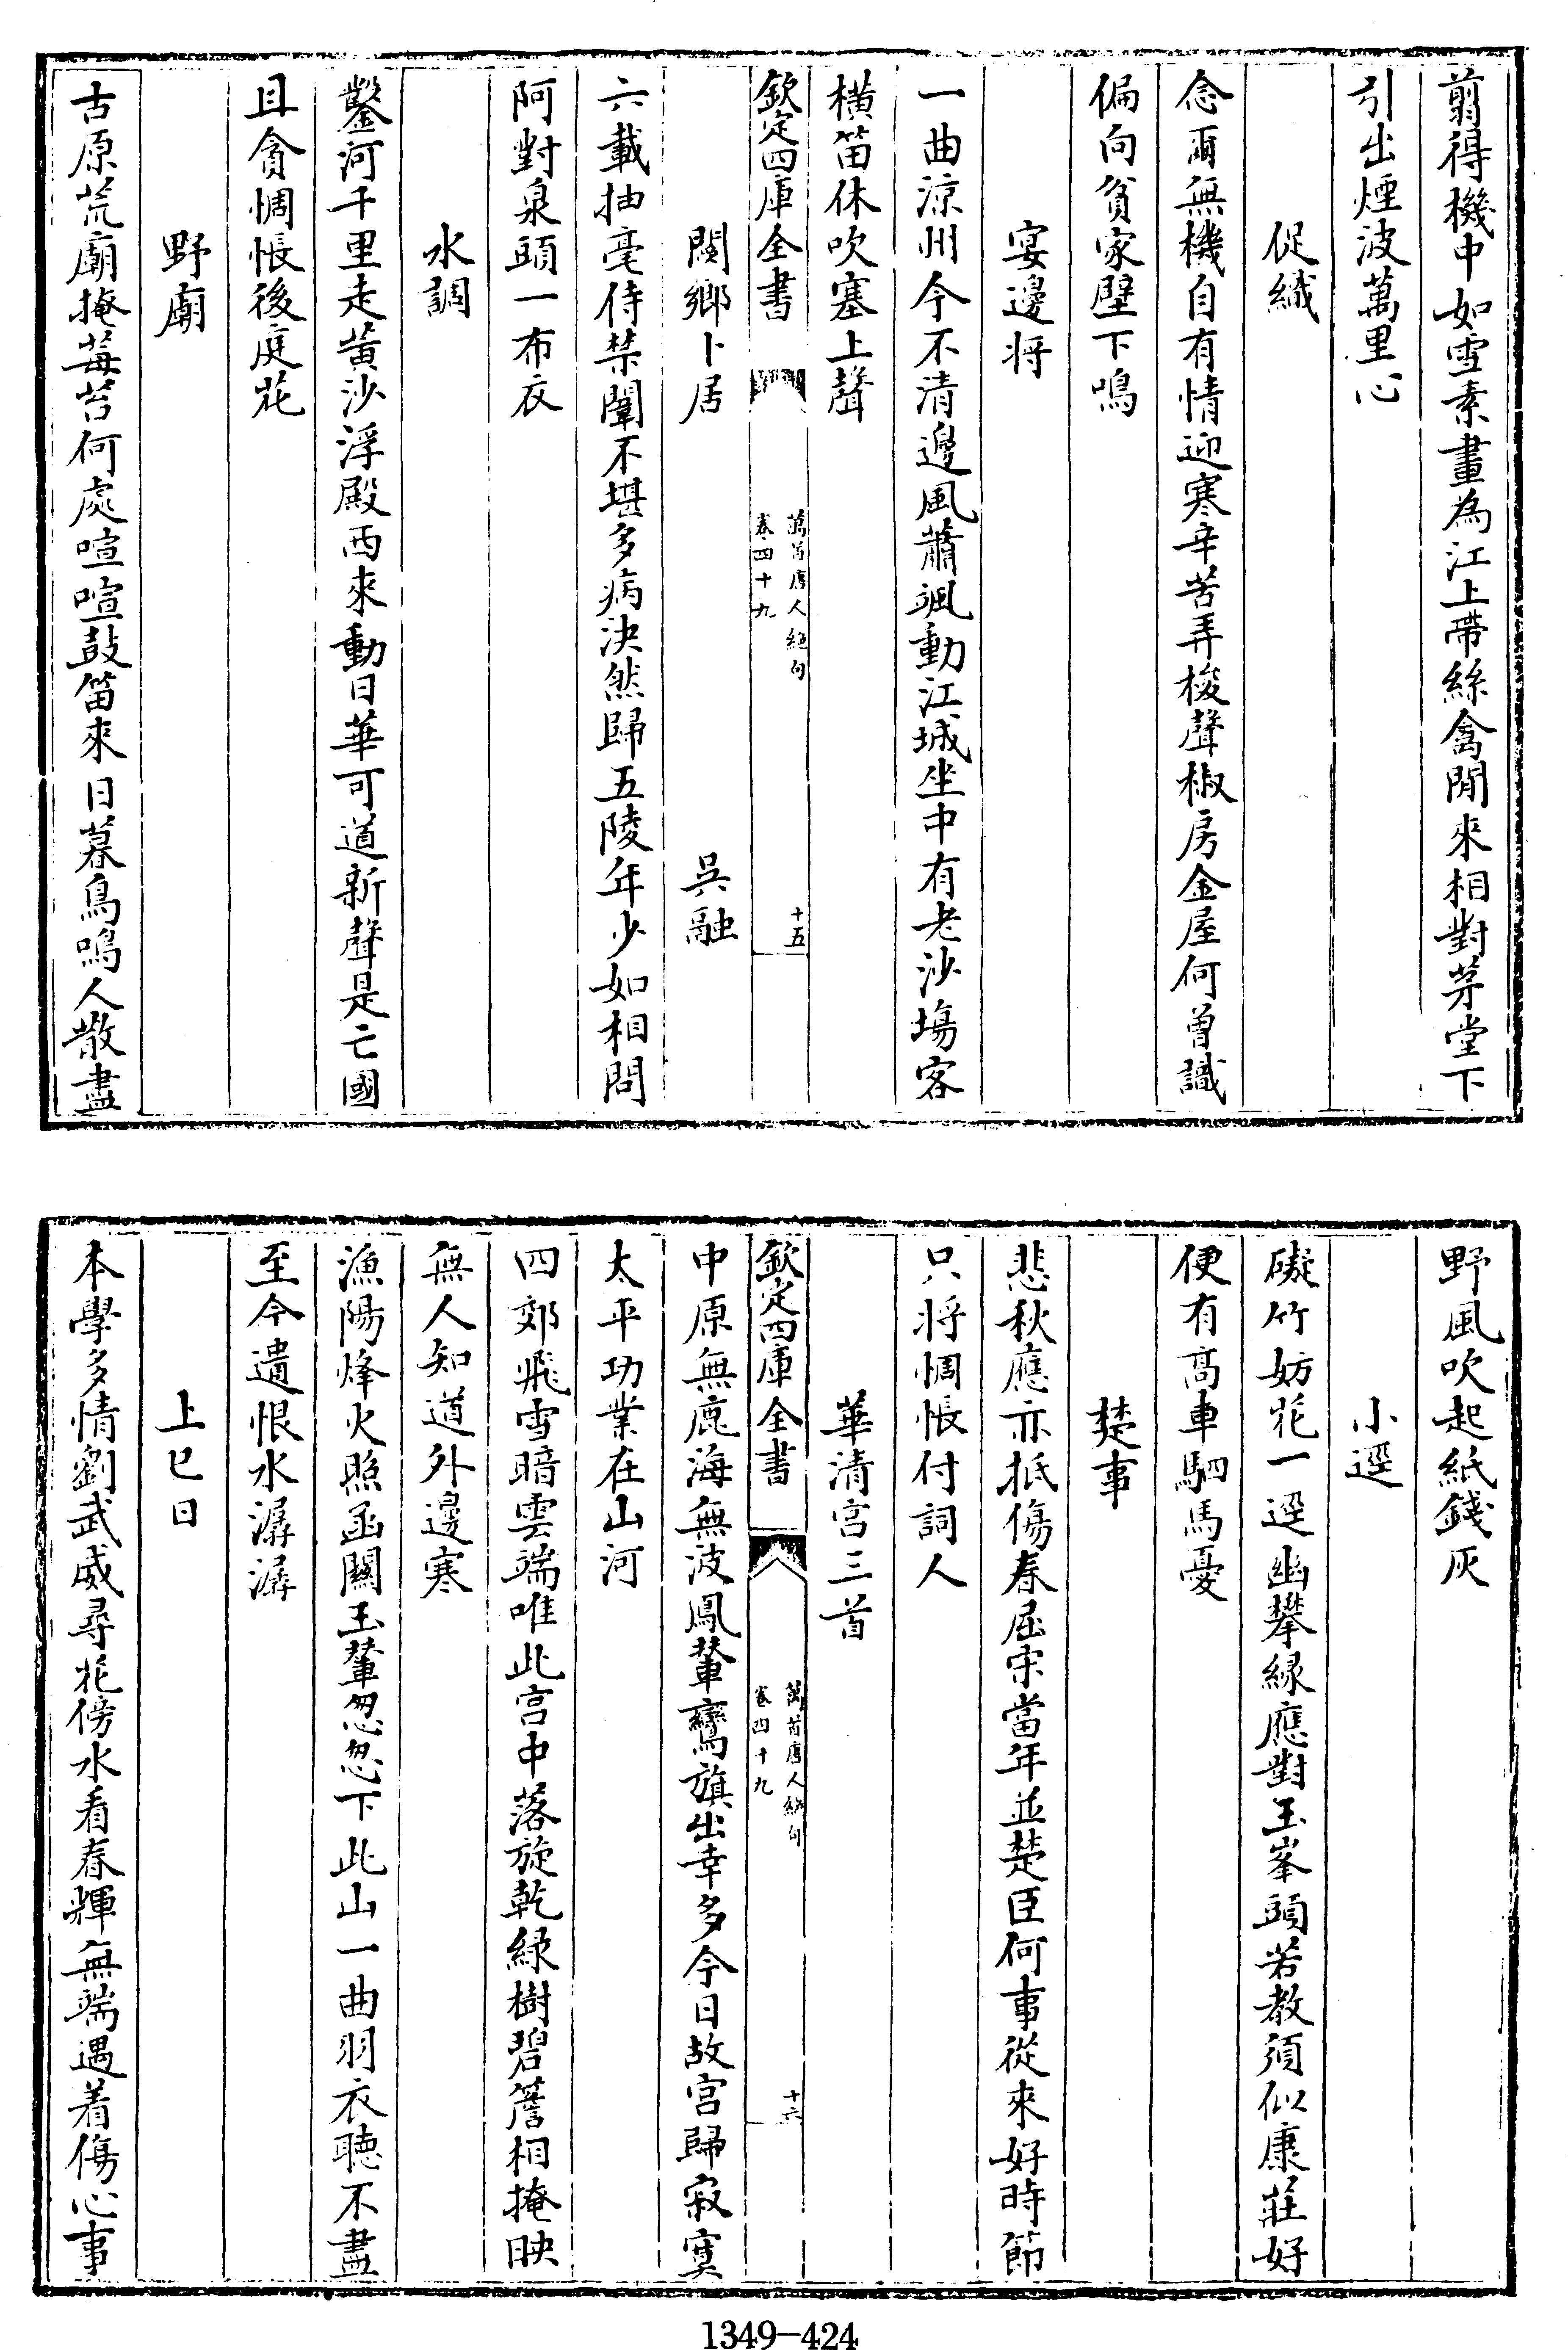 翦得機中如雪素畫為江上帶絲禽閒來相對茅堂下
引出煙波萬里心
促織
念爾無機自有情迎寒辛苦弄梭聲椒房金屋何曾識
偏向貧家壁下鳴
宴邊将
一曲涼州今不清邊風蕭颯動江城坐中有老沙塲客
橫笛休吹塞上聲
欽定四庫全書
萬首唐人絕句
卷四十九
十五
閿鄉卜居
吳融
六載抽毫侍禁闈不堪多病決然歸五陵年少如相問
阿對泉頭一布衣
水調
鑿河千里走黃沙浮殿西來動日華可道新聲是亡國
且貪惆悵後庭花
野廟
古原荒廟掩莓苔何處喧喧鼓笛來日暮鳥鳴人散盡
野風吹起紙錢灰
小逕
礙竹妨花一逕幽攀緑應對玉峯頭若教須似康莊好
便有髙車駟馬憂
楚事
悲秋應亦抵傷春屈宋當年並楚臣何事從來好時節
只将惆悵付詞人
華清宫三首
欽定四庫全書
萬首唐人絕句
卷四十九
十六
中原無鹿海無波鳳輦鸞旗出幸多今日故宫歸寂寞
太平功業在山河
四郊飛雪暗雲端唯此宫中落旋乾緑樹碧簷相掩映
無人知道外邊寒
漁陽烽火照函關玉輦怱怱下此山一曲羽衣聴不盡
至今遺恨水潺潺
上巳日
本學多情劉武威尋花傍水看春輝無端遇着傷心事
1349-424